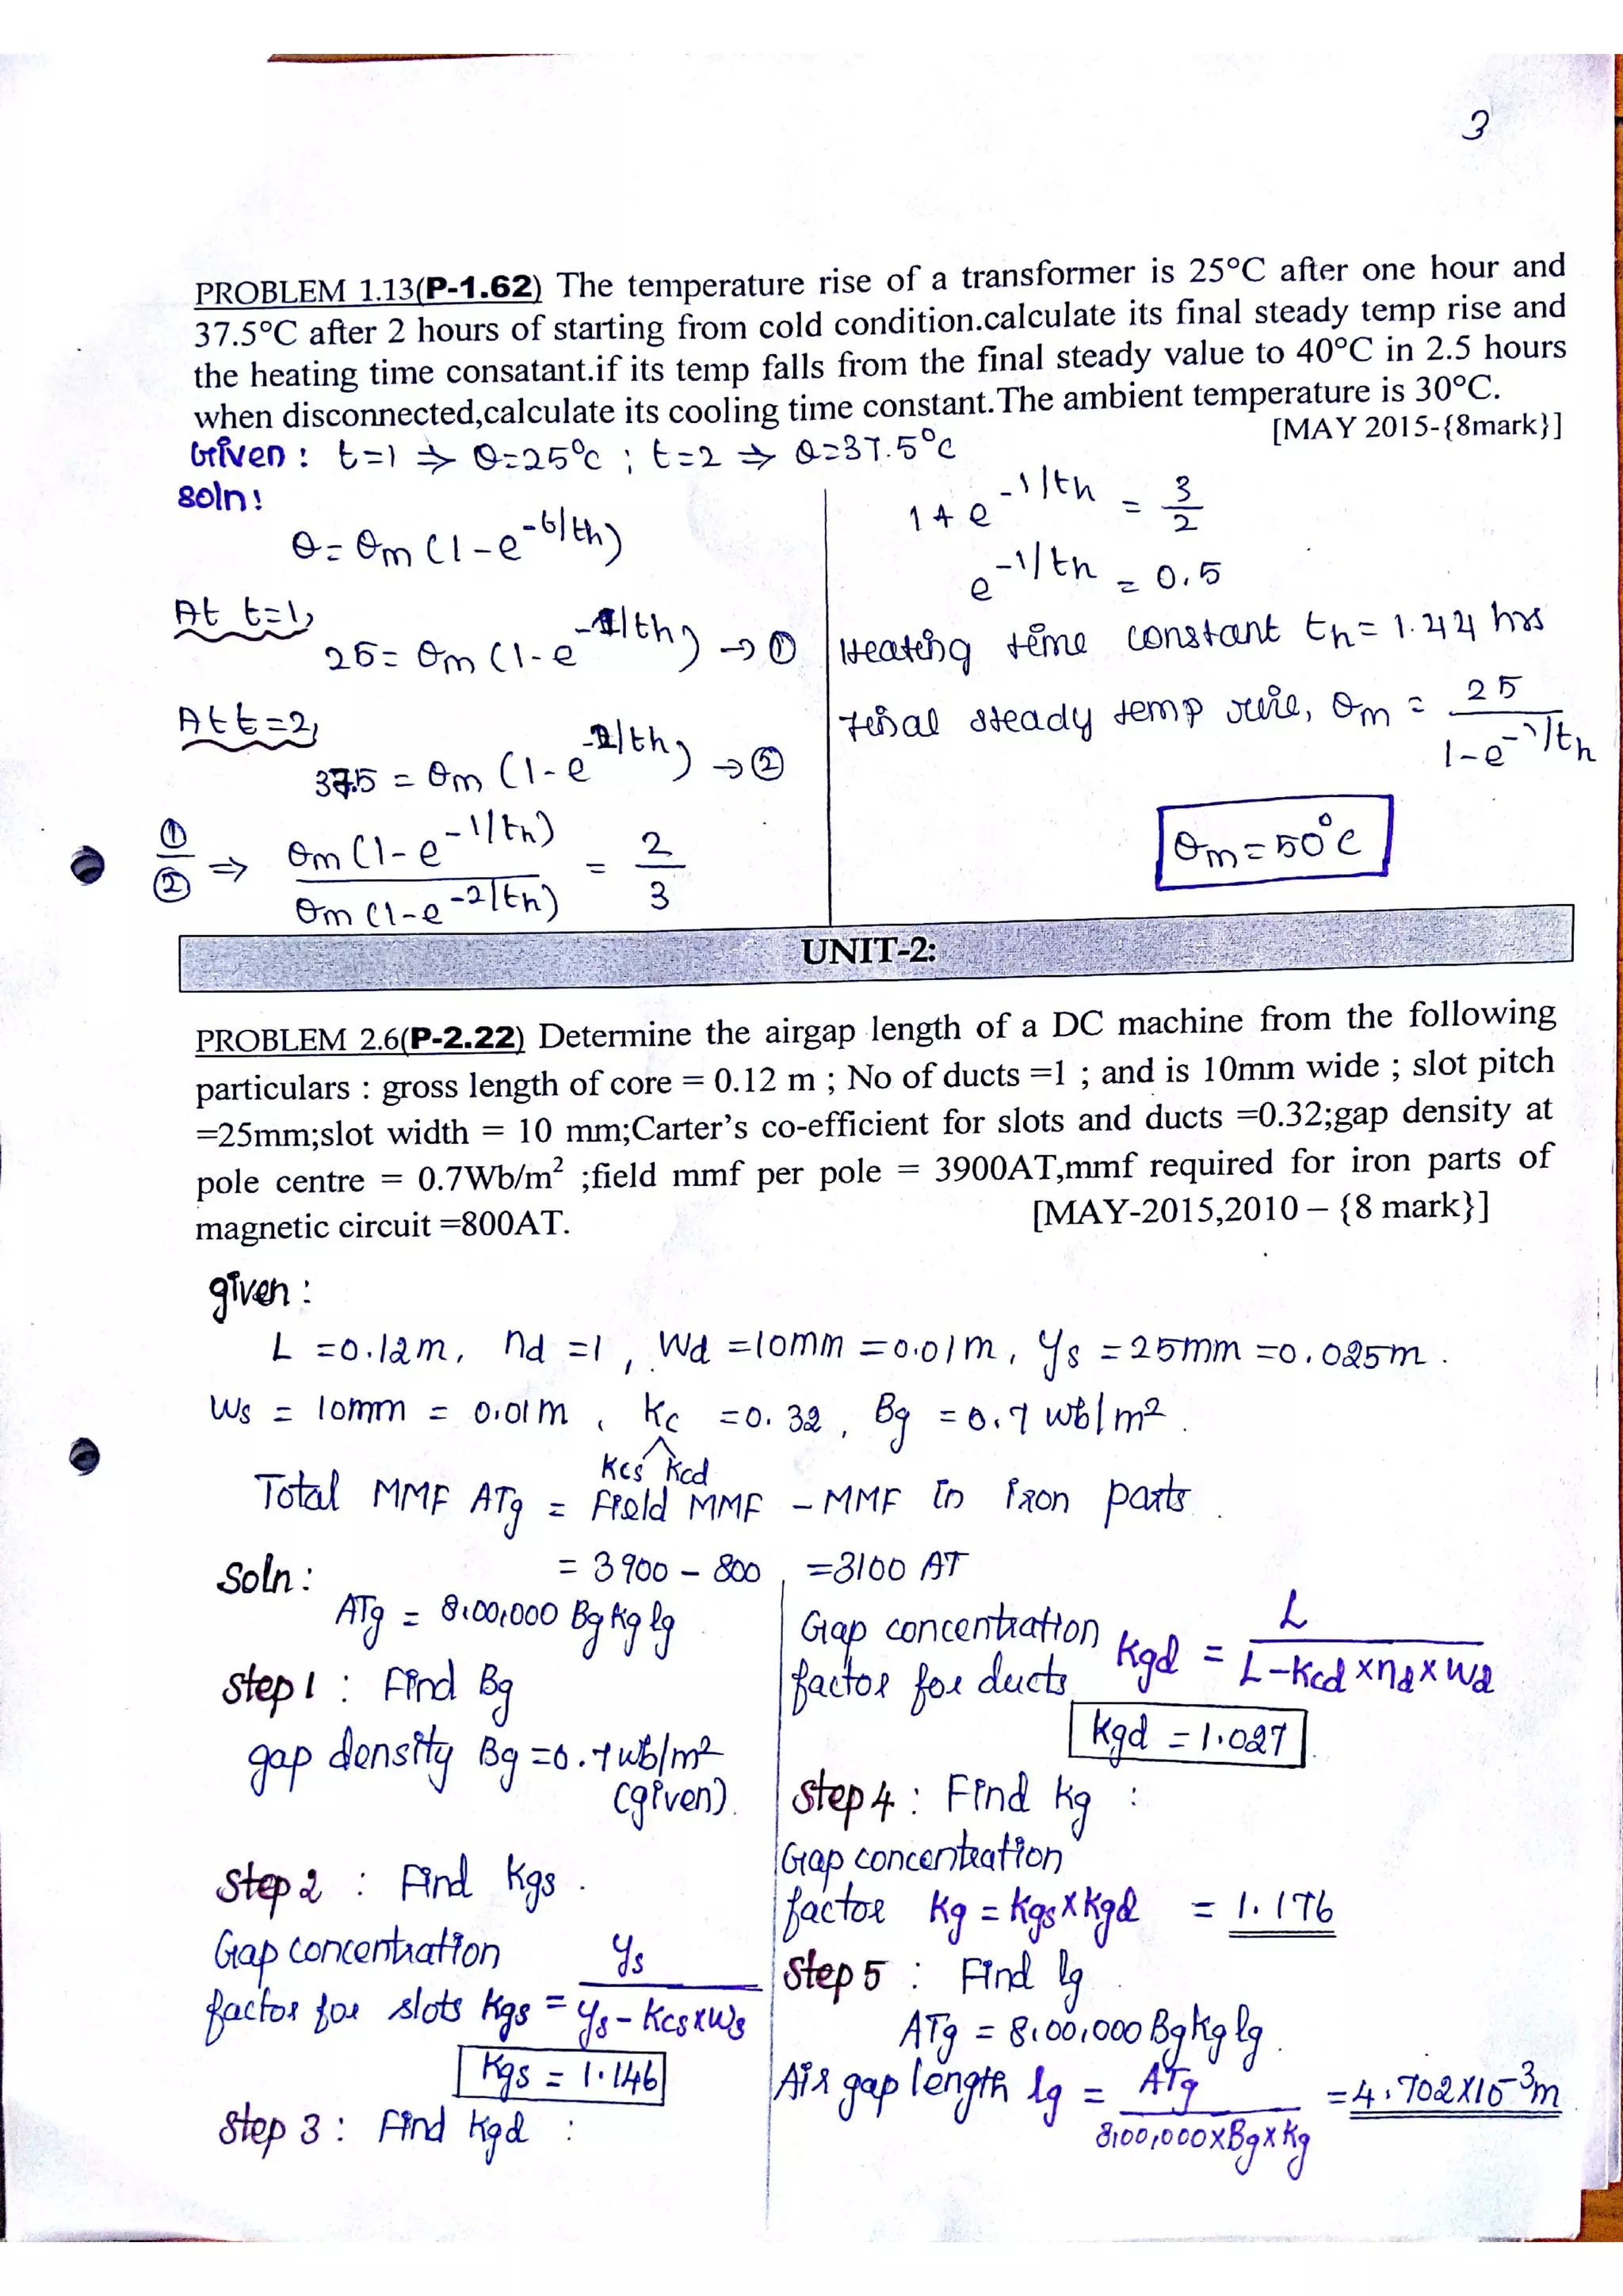 3
PROBLEM 1.13(P-1.62) The temperature rise of a transformer is 25°C after one hour and
37.5°C after 2 hours of starting from cold condition.calculate its final steady temp rise and
the heating time consatant.if its temp falls from the final steady value to 40°C in 2.5 hours
when disconnected,calculate its cooling time constant.The ambient temperature is 30°C.
[MAY 2015-{8mark}]
Given : t=1 ⇒ θ=25°C ; t=2 ⇒ θ=37.5°C
Soln:
θ = θm (1-e^-t/th)
At t=1,
25 = θm (1-e^-1/th) → ①
At t=2,
37.5 = θm (1-e^-2/th) → ②
①/② ⇒ θm (1-e^-1/th) / θm (1-e^-2/th) = 2/3
1+e^-1/th = 3/2
e^-1/th = 0.5
Heating time constant th = 1.44 hrs
Final steady temp rise, θm = 25 / 1-e^-1/th
θm = 50°C
UNIT-2:
PROBLEM 2.6(P-2.22) Determine the airgap length of a DC machine from the following
particulars : gross length of core = 0.12 m ; No of ducts =1 ; and is 10mm wide ; slot pitch
=25mm;slot width = 10 mm;Carter's co-efficient for slots and ducts =0.32;gap density at
pole centre = 0.7Wb/m² ;field mmf per pole = 3900AT,mmf required for iron parts of
magnetic circuit =800AT.
[MAY-2015,2010 – {8 mark}]
given :
L =0.12m, nd =1, Wd =10mm =0.01m, ys =25mm =0.025m.
Ws = 10mm = 0.01m, Kc =0.32, Bg =0.7 wb/m².
Kcs Kcd
Total MMF ATg = Field MMF - MMF in iron parts.
= 3900 - 800 =3100 AT
Soln:
ATg = 8,00,000 Bg Kg lg
Step 1 : Find Bg
gap density Bg =0.7wb/m²
(given).
Step 2 : Find Kgs.
Gap concentration
factor for slots Kgs = ys / ys - Kcs x Ws
Kgs = 1.146
Step 3 : Find Kgd :
Gap concentration
factor for ducts Kgd = L / L-Kcd x nd x Wd
Kgd = 1.027
Step 4 : Find Kg :
Gap concentration
factor Kg = Kgs x Kgd = 1.176
Step 5 : Find lg.
ATg = 8,00,000 Bg Kg lg.
Air gap length lg = ATg / 8,00,000 x Bg x Kg = 4.702 x 10^-3 m